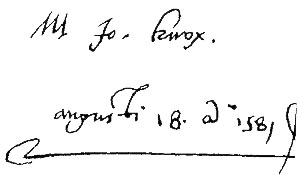 M Jo. Knox.
augusti 18. a° 1581